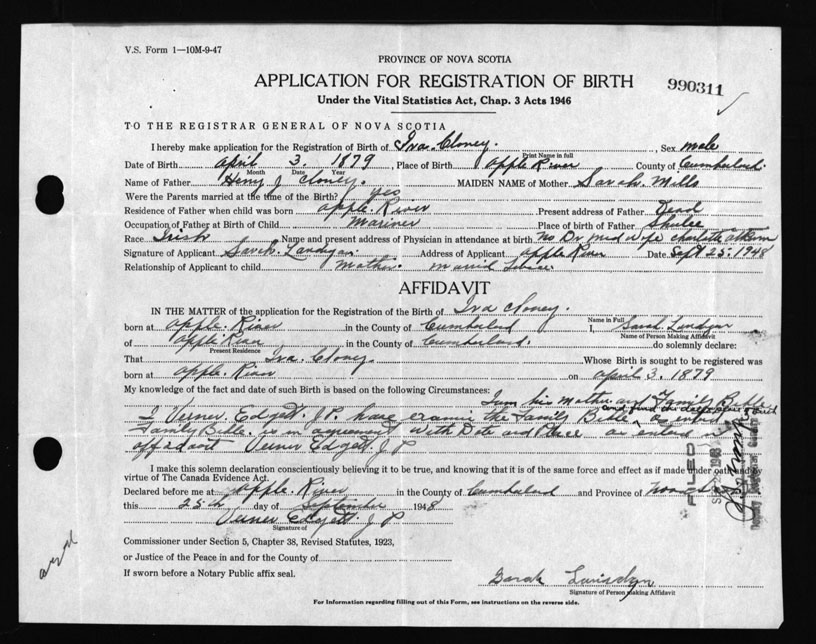 V.S. Form 1—10M-9-47
PROVINCE OF NOVA SCOTIA
APPLICATION FOR REGISTRATION OF BIRTH
990311
Under the Vital Statistics Act, Chap. 3 Acts 1946
TO THE REGISTRAR GENERAL OF NOVA SCOTIA
I hereby make application for the Registration of Birth of Iva Cloney. , Sex male
Print Name in full
Date of Birth April 3. 1879 , Place of Birth Apple River County of Cumberland.
Month Date Year
Name of Father Henry J Cloney. MAIDEN NAME of Mother Sarah Mills
Were the Parents married at the time of the Birth? yes
Residence of Father when child was born Apple River Present address of Father Dead
Occupation of Father at Birth of Child Mariner Place of birth of Father
Race Irish Name and present address of Physician in attendance at birth No Dr, mid wife Charlotte
Signature of Applicant Sarah Address of Applicant Apple River Date Sept 25. 1948
Relationship of Applicant to child Mother.
AFFIDAVIT
IN THE MATTER of the application for the Registration of the Birth of Iva Cloney.
Name in Full
born at Apple River in the County of Cumberland I, Sarah
Name of Person Making Affidavit
of Apple River in the County of Cumberland. do solemnly declare:
Present Residence
That Iva Cloney. Whose Birth is sought to be registered was
born at Apple River on April 3. 1879
My knowledge of the fact and date of such Birth is based on the following Circumstances:
I am his Mother and Family Bible
I Verner Edgett J.P. have the Family Bible
Family Bible is in agreement with Date and Place as in
affidavit Verner Edgett J P
I make this solemn declaration conscientiously believing it to be true, and knowing that it is of the same force and effect as if made under oath and by
virtue of The Canada Evidence Act.
Declared before me at Apple River in the County of Cumberland and Province of Nova
this 25 day of September 1948
Verner Edgett J P
Signature of
Commissioner under Section 5, Chapter 38, Revised Statutes, 1923,
or Justice of the Peace in and for the County of
If sworn before a Notary Public affix seal.
Sarah
Signature of Person making Affidavit
For Information regarding filling out of this Form, see instructions on the reverse side.
FILED